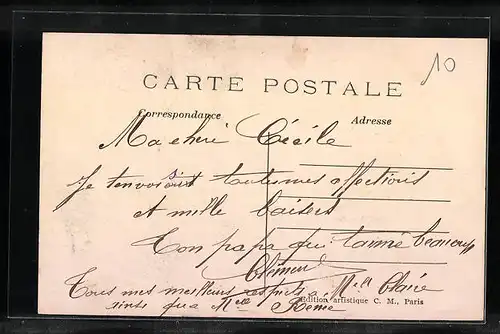 10
CARTE POSTALE
Correspondance
Adresse
Ma cheri Cécile
Je tenvois toutes mes affections
et mille baisers
Ton papa qui taime beaucoup
Tous mes meilleurs respects a Mell Claire
ainsi qua Melle
Edition artistique C. M., Paris